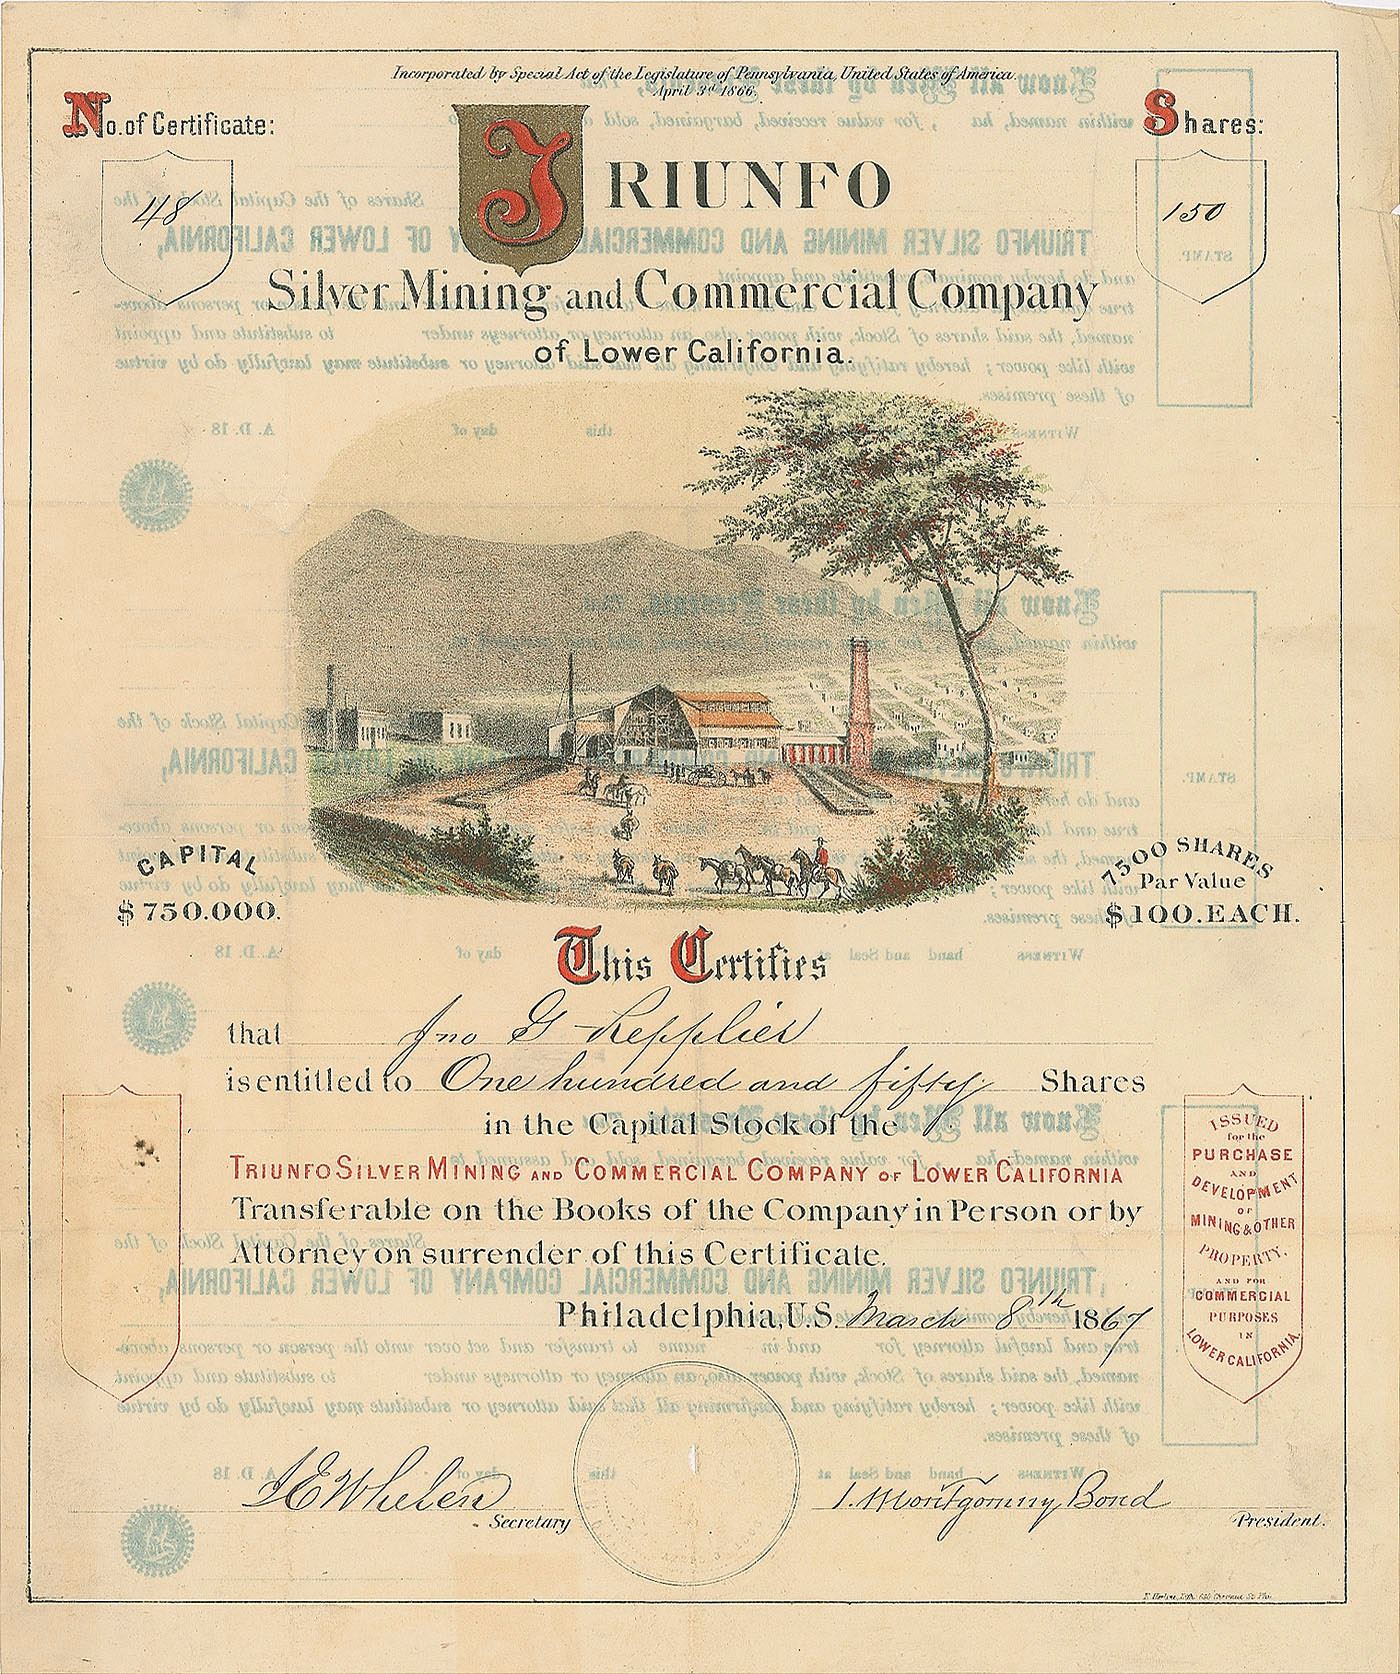 Incorporated by Special Act of the Legislature of Pennsylvania, United States of America.
April 3d 1866.
No. of Certificate:
48
Shares:
150
TRIUNFO
Silver Mining and Commercial Company
of Lower California.
CAPITAL
$750.000.
7500 SHARES
Par Value
$100. EACH.
This Certifies
that Jno G Repplier
is entitled to One hundred and fifty Shares
in the Capital Stock of the
TRIUNFO SILVER MINING AND COMMERCIAL COMPANY OF LOWER CALIFORNIA
Transferable on the Books of the Company in Person or by
Attorney on surrender of this Certificate.
Philadelphia, U.S. March 8th 1867
ISSUED
for the
PURCHASE
AND
DEVELOPMENT
OF
MINING & OTHER
PROPERTY,
AND FOR
COMMERCIAL
PURPOSES
IN
LOWER CALIFORNIA.
Whelen
Secretary
Montgomery Bond
President.